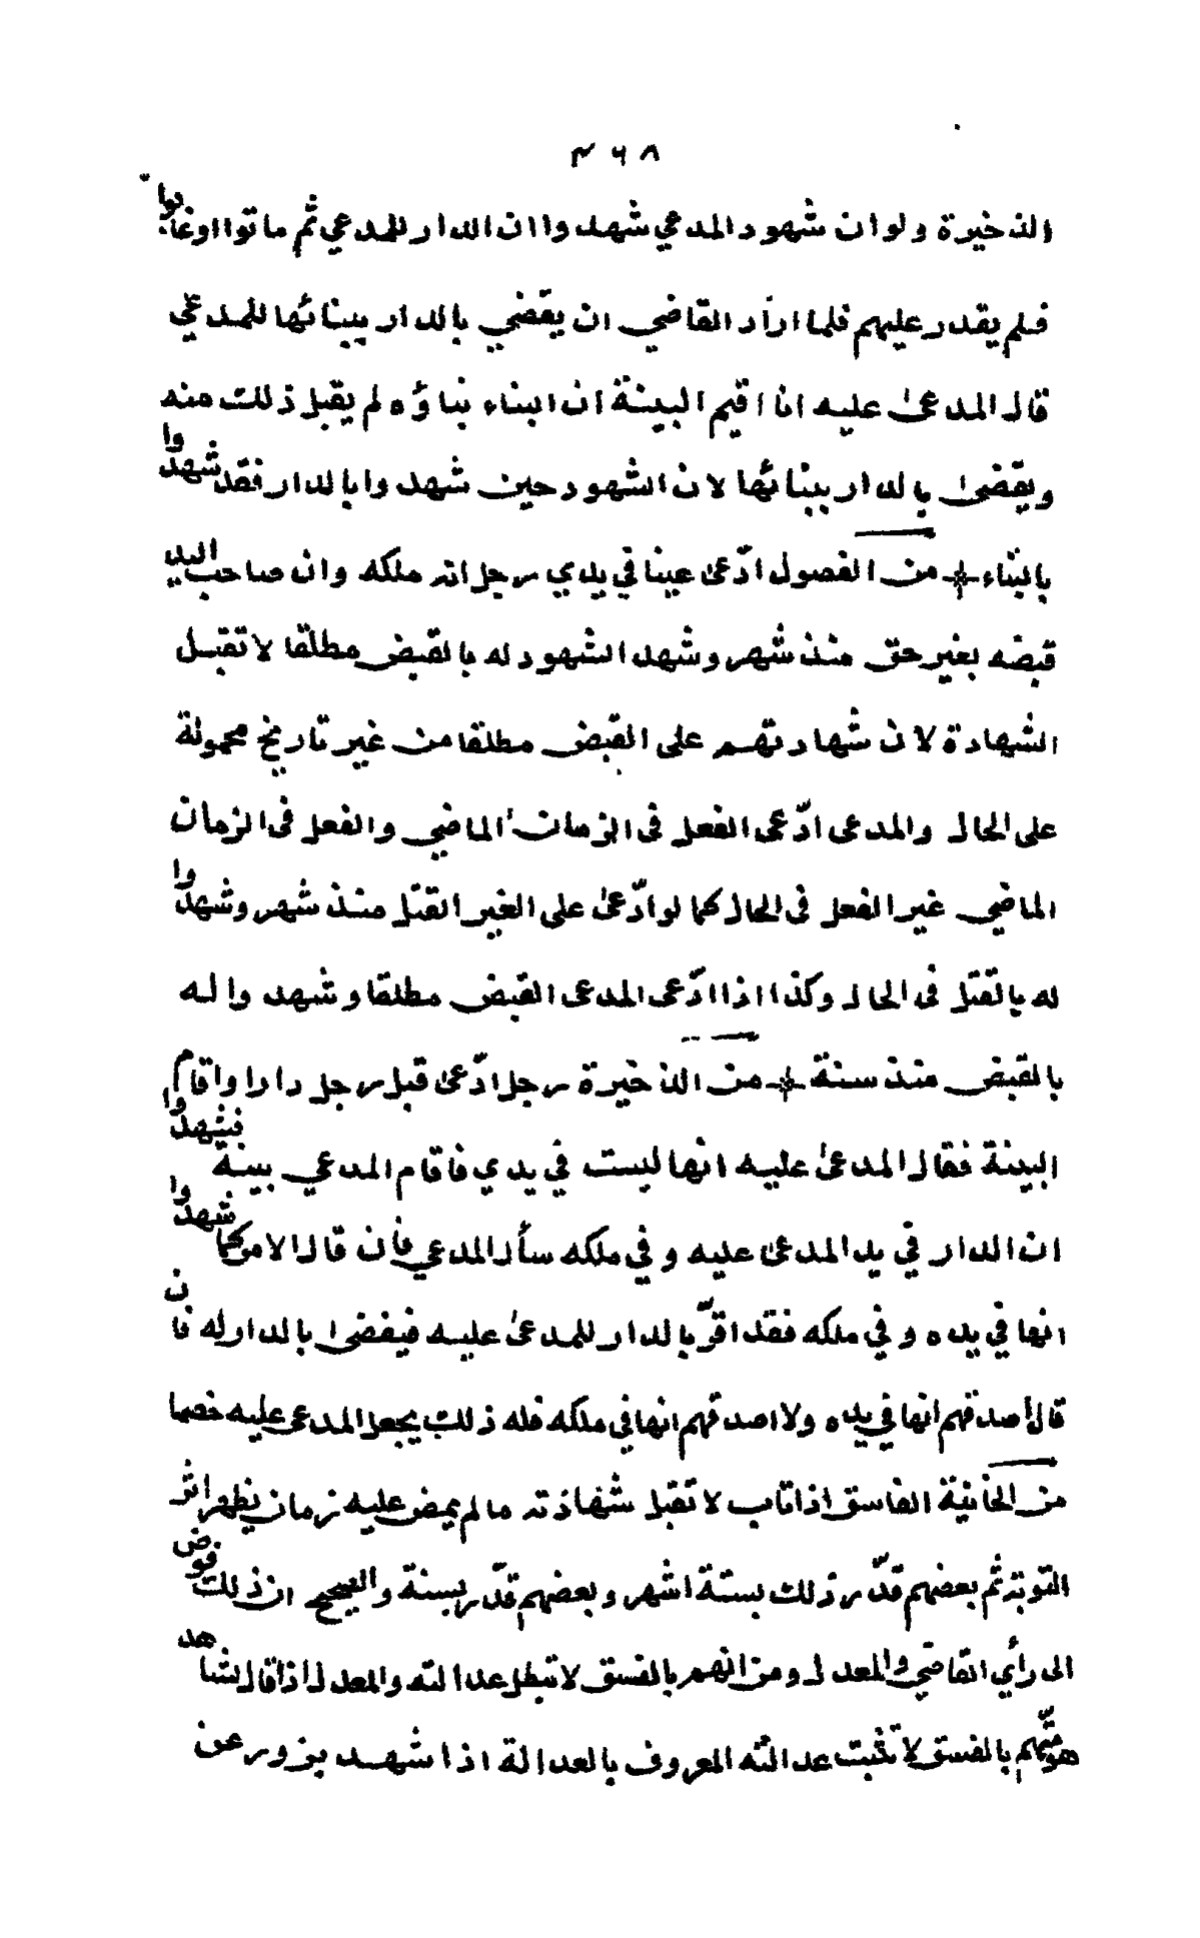 ٣٦٨
الذخيرة ولو ان شهود المدعي شهدوا ان الدار للمدعي ثم ماتوا او غابوا
فلم يقدر عليهم فلما اراد القاضي ان يقضي بالدار ببنائها للمدعي
قال المدعى عليه انا اقيم البينة ان البناء بناؤه لم يقبل ذلك منه
ويقضى بالدار ببنائها لان الشهود حين شهدوا بالدار فقد شهدوا
بالبناء + من الفصول ادّعى عينا في يدي رجل انه ملكه وان صاحب اليد
قبضه بغير حق منذ شهر وشهد الشهود له بالقبض مطلقا لا تقبل
الشهادة لان شهادتهم على القبض مطلقا من غير تاريخ محمولة
على الحال والمدعى ادّعى الفعل فى الزمان الماضي والفعل فى الزمان
الماضي غير الفعل فى الحال كما لو ادّعى على الغير القتل منذ شهر وشهدوا
له بالقتل فى الحال وكذا اذا ادّعى المدعى القبض مطلقا وشهدوا له
بالقبض منذ سنة + من الذخيرة رجل ادّعى قبل رجل دارا واقام
البينة فقال المدعى عليه انها ليست في يدي فاقام المدعي بينة فشهدوا
ان الدار في يد المدعى عليه وفي ملكه سأل المدعي فان قال الامر كما شهدوا
انها في يده وفي ملكه فقد اقرّ بالدار للمدعى عليه فيقضى بالدار له فان
قال أصدقهم انها في يده ولا اصدقهم انها في ملكه فله ذلك يجعل المدعى عليه خصما
من الخانية الفاسق اذا تاب لا تقبل شهادته ما لم يمض عليه زمان يظهر اثر
التوبة ثم بعضهم قدّر ذلك بستة اشهر وبعضهم قدّر بسنة والصحيح ان ذلك فوض
الى رأي القاضي والمعدل ومن اتهم بالفسق لا تبطل عدالته والمعدل اذا قال لشاهد
هو متّهم بالفسق لا تثبت عدالته المعروف بالعدالة اذا شهد بزور عن